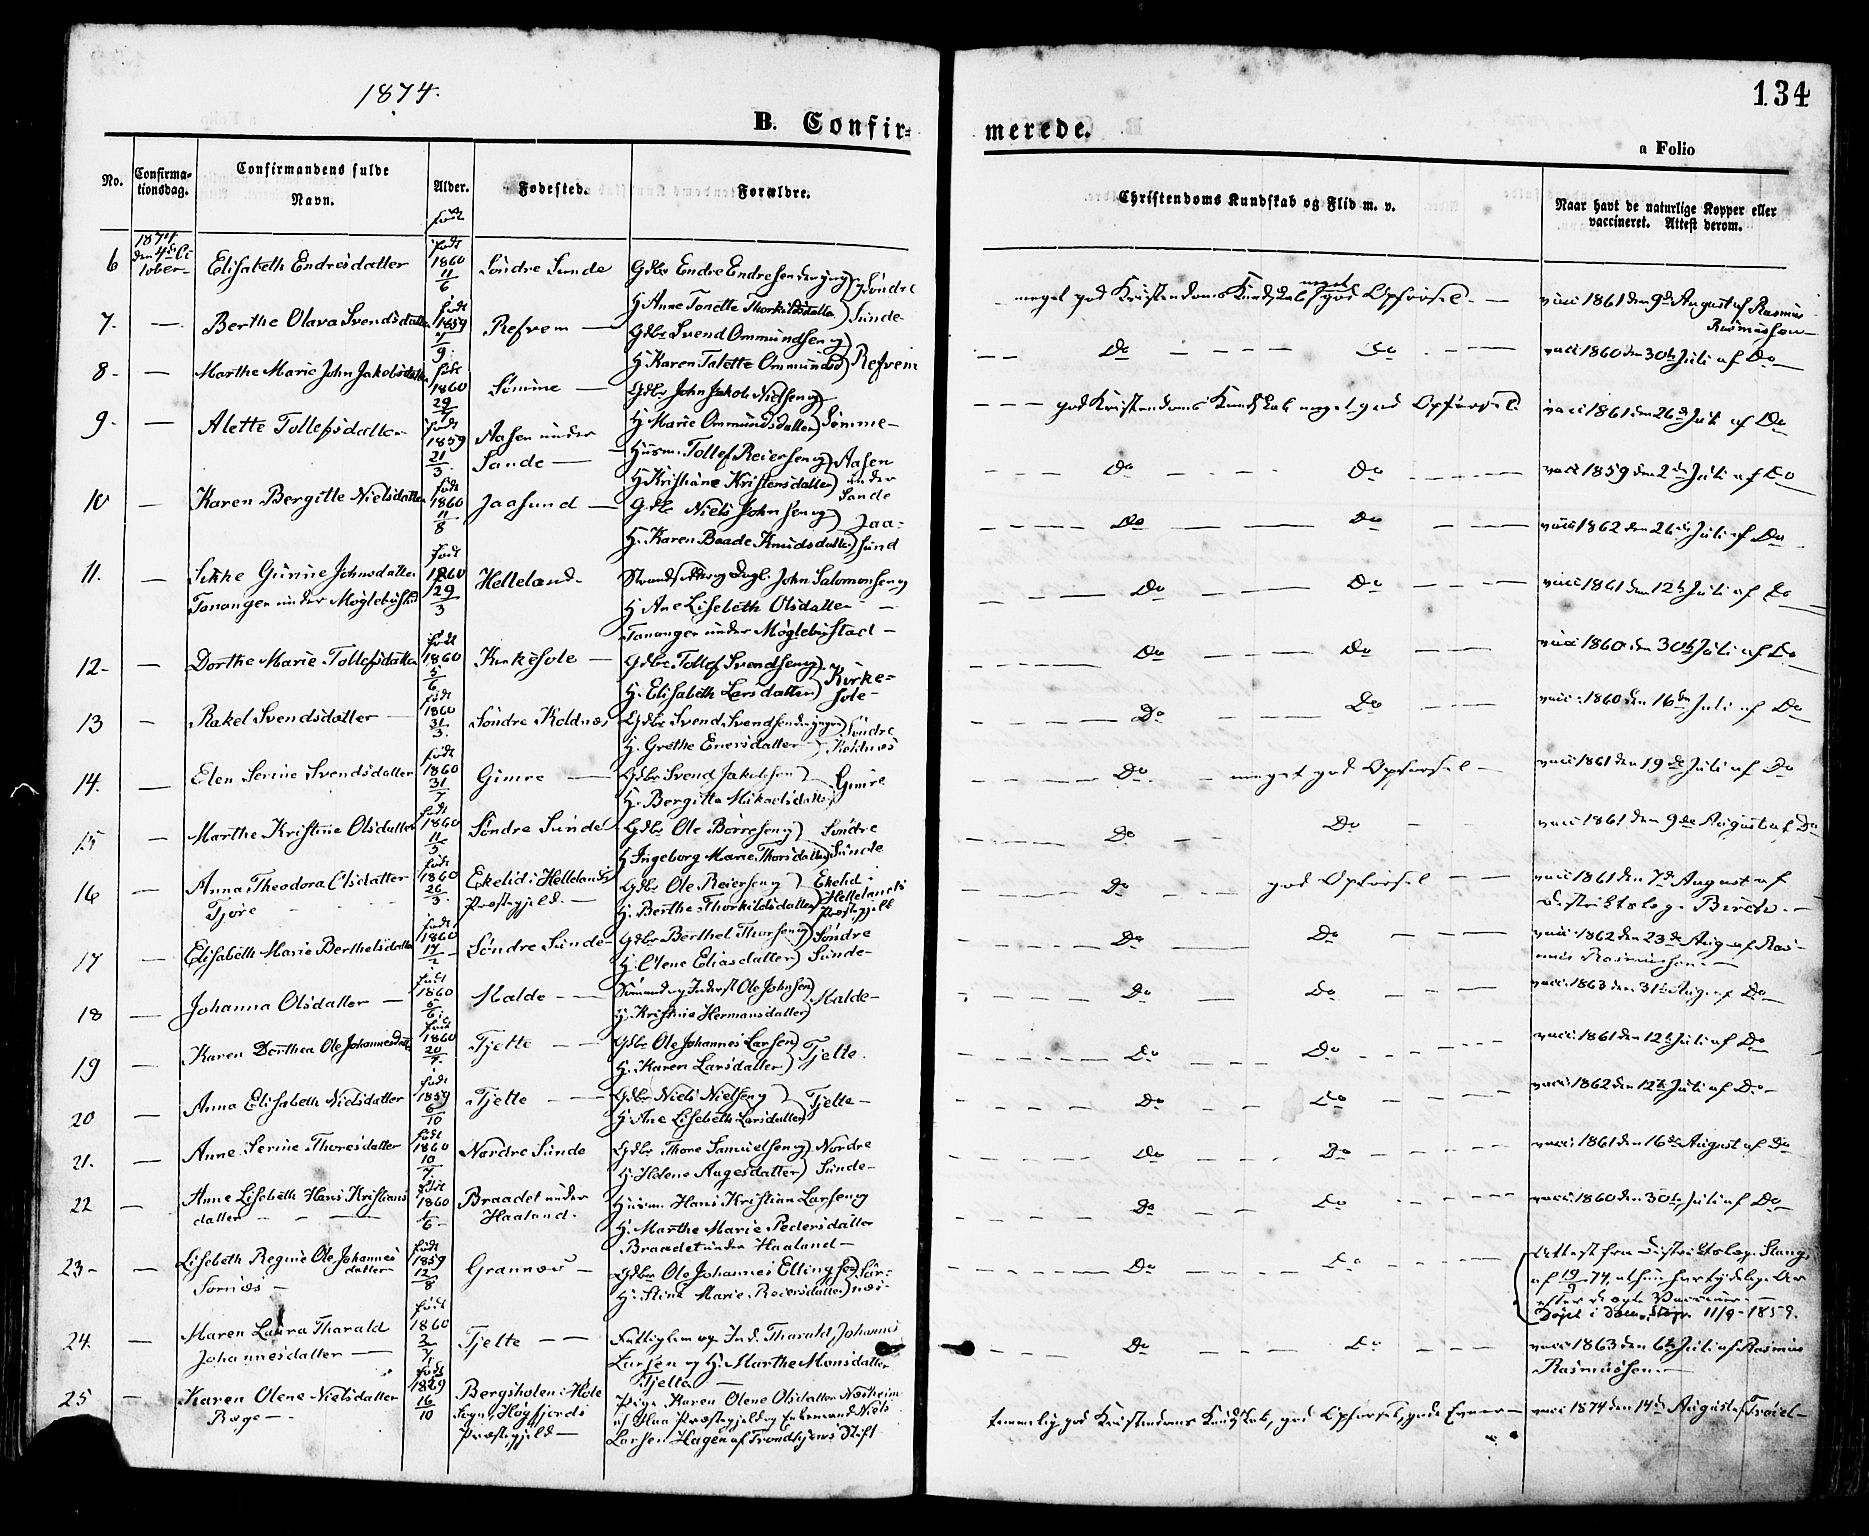 1874.
134
B. Confir-
merede.
a Folio
No.
Confirma-
tionsdag.
Confirmandens fulde
Navn.
Alder.
Fødested.
Forældre.
Christendoms Kundskab og Flid m. v.
Naar havt de naturlige Kopper eller
vaccineret. Attest derom.
født
6 1874 den 4de Oc-tober Elisabeth Endresdatter født 1860 11/6 Søndre Sunde
Gdbr Endre Endresen den yngre og Søndre
H. Anne Tonette Thorkildsdatter Sunde
meget god Kristendoms Kundskab meget god Opførsel
vacc 1861 den 9de August af Rasmus
Rasmussen
7. — Berthe Olava Svendsdatter født 1859 7/9 Refvem —
Gdbr Svend Ommundsen og
H. Karen Talette Ommundsd Refvem
Do Do
vacc 1860 den 30te Juli af Do
8 — Marthe Marie John Jakobsdatter født 1860 29/7 Sømme —
Gdbr John Jakob Nielsen og
H Marie Ommundsdatter Sømme
god Kristendoms Kundskab meget god Opførsel
vacc 1861 den 26de Juli af Do
9 — Alette Tollefsdatter født 1859 21/3 Aasen under
Sande —
Husm. Tollef Reiersen og Aasen
H. Kristiane Kristensdatter under
Sande
Do Do
vacc 1859 den 2den Juli af Do
10 — Karen Bergitte Nielsdatter født 1860 11/8 Jaasund —
Gdbr Niels Johnsen og Jaa-
H. Karen Baade Knudsdatter sund
Do Do
vacc 1862 den 26de Juli af Do
11. — Sikke Gurine Johnsdatter født 1860 29/3 Helleland
Tananger under Møglebustad
John Salomonsen og
H Ane Lisebeth Olsdatter
Tananger under Møglebustad
Do Do
vacc 1861 den 12te Juli af Do
12 — Dorthe Marie Tollefsdatter født 1860 5/6 Kirkesole —
Gdbr Tollef Svendsen og Kirke-
H. Elisabeth Larsdatter sole
Do Do
vacc 1860 den 30te Juli af Do
13 — Rakel Svendsdatter født 1860 31/3 Søndre Koldnæs
Gdbr Svend Svendsen den yngre Søndre
H. Grethe Enersdatter Kolnæs
Do Do
vacc 1860 den 16de Juli af Do
14. — Elen Serine Svendsdatter født 1860 31/7 Gimre —
Gdbr Svend Jakobsen Gimre
H. Bergitta Mikaelsdatter
Do meget god Opførsel
vacc 1861 den 19de Juli af Do
15 — Marthe Kristine Olsdatter født 1860 11/3 Søndre Sunde
Gdbr Ole Børresen og Søndre
H Ingeborg Marie Thorsdatter Sunde
Do Do
vacc 1861 den 9de August af Do
16 — Anna Theodora Olsdatter født 1860 26/3 Ekelid i Hellelands
Tjøre Præstegjeld.
Gdbr Ole Reiersen og Ekelid i
H. Berthe Thorkildsdatter Hellelands
Præstegjeld
Do god Opførsel
vacc 1861 den 7de August af
Distriktslæge Birch.
17 — Elisabeth Marie Berthelsdatter født 1860 17/2 Søndre Sunde
Gdbr Berthel Thorsen og Søndre
H. Olene Eliasdatter Sunde
Do Do
vacc 1862 den 23de Aug af Ras-
mus Rasmussen.
18 — Johanna Olsdatter født 1860 5/6 Malde —
Sømand og Inderst Ole Johnsen
H. Kristine Hermansdatter Malde
Do Do
vacc 1863 den 31te Aug af Do
19 — Karen Dorthea Ole Johannesdatter født 1860 20/7 Tjelte —
Gdbr Ole Johannes Larsen
H. Karen Larsdatter Tjelte.
Do Do
vacc 1861 den 12te Juli af Do
20 — Anna Elisabeth Nielsdatter født 1859 6/10 Tjelte —
Gdbr Niels Nielsen og Tjelte
H Ane Lisebeth Larsdatter
Do Do
vacc 1862 den 12te Juli af Do
21. — Anne Serine Thoresdatter født 1860 10/7 Nordre Sunde
Gdbr Thore Samuelsen og Nordre
H. Helene Aagesdatter Sunde
Do Do
vacc 1861 den 16de August af Do
22 — Anne Lisebeth Hans Kristians født 1860 1/6 Braadet under
datter Haaland.
Husm. Hans Kristian Larsen og
H. Marthe Marie Pedersdatter
Braadet under Haaland
Do Do
vacc 1860 den 30te Juli af Do
23 — Lisebeth Regine Ole Johannes født 1859 12/8 Grannæs —
datter
Sørnæs
Gdbr Ole Johannes Ellingsen Sør-
H. Stine Marie Reiersdatter næs
Do Do
Attest fra Distriktslæge Stang
af 19/9 74, at hun har tydelige Ar
efter Vaccine.
Døpt i 11/9 - 1859.
24. — Maren Laura Tharald født 1860 2/4 Tjelte —
Johannesdatter
Fattiglem og Ind. Tharald Johannes
Larsen og H. Marthe Monsdatter
Tjelte
Do Do
vacc 1863 den 6te Juli af Rasmus
Rasmussen.
25 — Karen Olene Nielsdatter født 1859 16/10 Bergsholen i Hole
Ræge Sogn, Høgsfjords
Præstegjeld
Pige Karen Olene Olsdatter Næsheim
af Haa Præstegjeld og Niels
Larsen Hagen af Trondhjems Stift
temmelig god Kristendoms Kundskab, god Opførsel, gode Evner
vacc 1874 den 14de August af Troiel